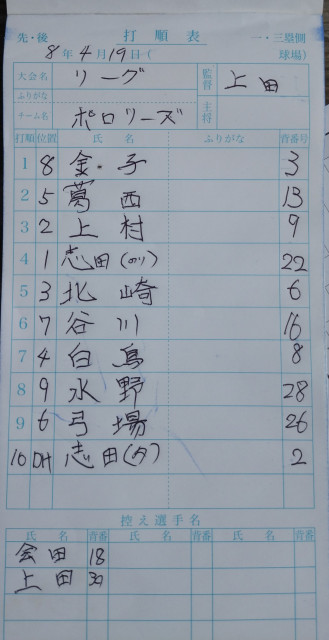 先・後 打順表 一・三塁側
8年4月19日( 球場)
大会名 リーグ 監督 上田
ふりがな
チーム名 ポロリーズ 主将
打順 位置 氏名 ふりがな 背番号
1 8 金・子 3
2 5 葛西 13
3 2 上村 9
4 1 志田(のり) 22
5 3 北崎 6
6 7 谷川 16
7 4 白鳥 8
8 9 水野 28
9 6 弓場 26
10 DH 志田(夕) 2
控え選手名
氏名 背番 氏名 背番 氏名 背番
会田 18
上田 30